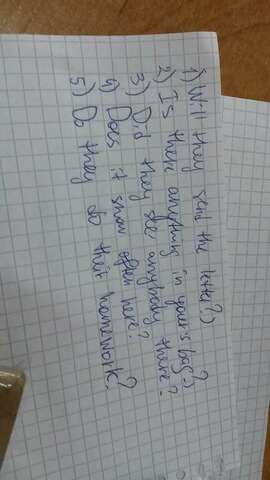 1) Will they send the letter?
2) Is there anything in your's bag?
3) Did they see anybody there?
4) Does it snow often here?
5) Do they do their homework?